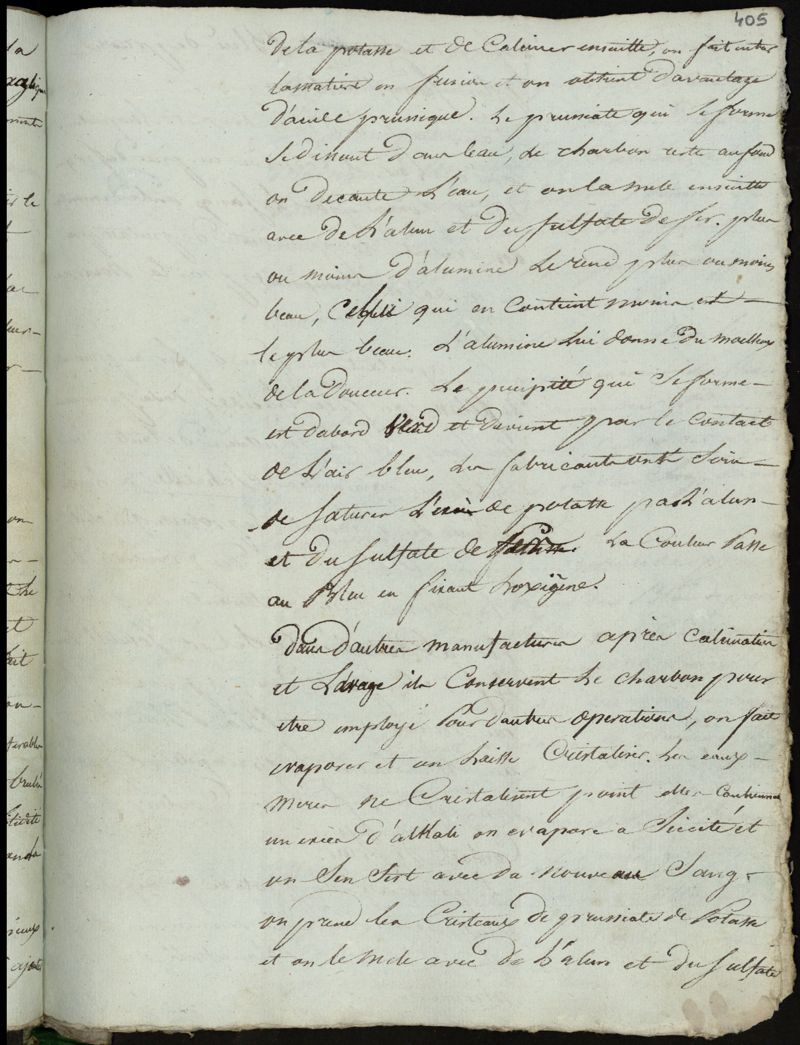 405
de la potasse et de Calciner ensuitte, on fait entrer
la matiere en fusion et on obtient davantage
d'acide prussique. Le prussiate qui se forme
se dissout dans l'eau, le charbon reste au fond
on decante L'eau, et on la mele ensuitte
avec de L'alun et du sulfate de fer. plus
ou moins d'alumine le rend plus ou moins
beau, Celui qui en Contient moins est
le plus beau. L'alumine lui donne du moelleux
de la Douceur. Le precipité qui se forme
est dabord Verd et devient par le Contact
de L'air bleu, Les fabricants ont soin
de saturer L'exces de potasse par L'alun
et du sulfate de La Couleur Passe
au Bleu en fixant Loxigène.
Dans d'autres manufactures après Calcination
et Lavage ils Conservent Le charbon pour
etre employé Pour dautres operations, on fait
evaporer et on Laisse Cristaliser. Les eaux
meres ne Cristalisent point elles Contiennent
un exces d'alkali on evapore a Siccité et
on s'en sert avec du nouveau Sang
on prend les Cristeaux de prussiate de Potasse
et on le mele avec de L'alun et du sulfate